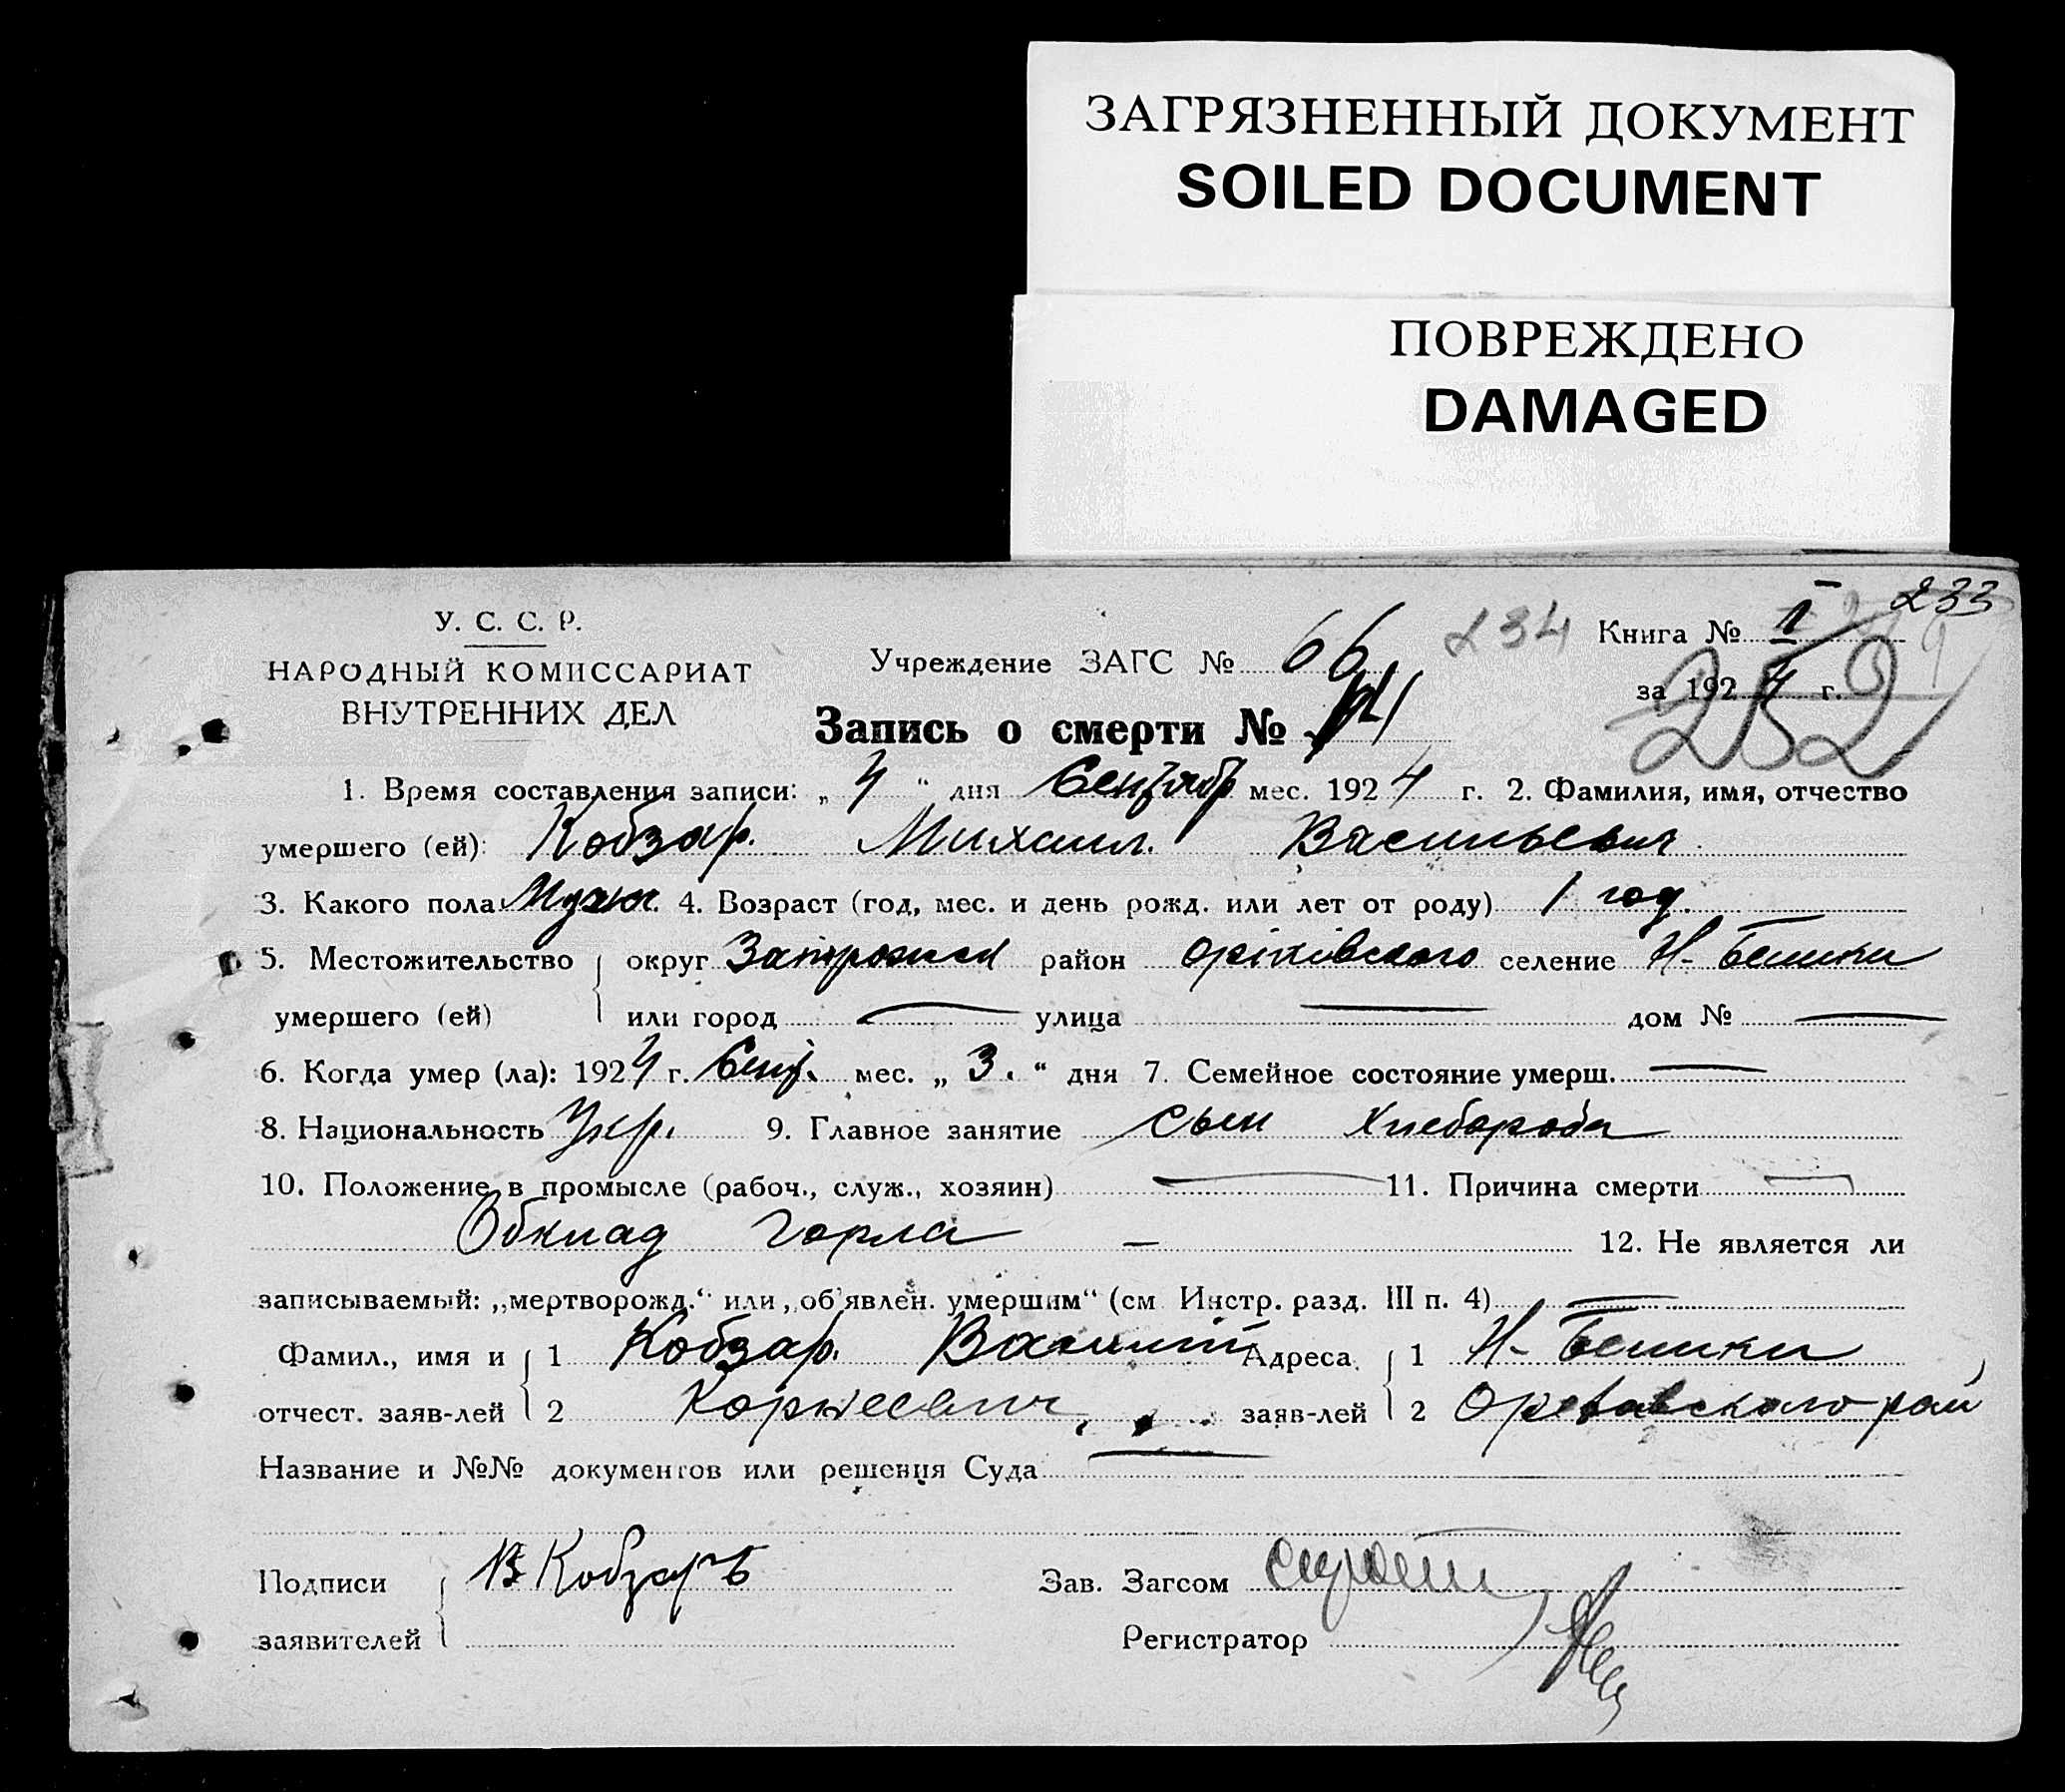 ЗАГРЯЗНЕННЫЙ ДОКУМЕНТ
SOILED DOCUMENT
ПОВРЕЖДЕНО
DAMAGED
233
У. С. С. Р.
НАРОДНЫЙ КОМИССАРИАТ
ВНУТРЕННИХ ДЕЛ
Учреждение ЗАГС № 66 234 Книга № I
за 1924 г. 252
Запись о смерти №
1. Время составления записи: „4“ дня Сентябр мес. 1924 г. 2. Фамилия, имя, отчество
умершего (ей): Кобзар. Михаил. Васильевич
3. Какого пола Мужск. 4. Возраст (год, мес. и день рожд. или лет от роду) 1 год.
5. Местожительство округ Запорожск район Оріхівського селение Н-Бешки
умершего (ей) или город — улица — дом № —
6. Когда умер (ла): 1924 г. Сент. мес. „3.“ дня 7. Семейное состояние умерш. —
8. Национальность Укр. 9. Главное занятие сын Хлебороба
10. Положение в промысле (рабоч., служ., хозяин) — 11. Причина смерти —
Обклад Горла — 12. Не является ли
записываемый: „мертворожд.“ или „об'явлен. умершим“ (см Инстр. разд. III п. 4) —
Фамил., имя и 1 Кобзар. Василий Адреса 1 Н-Бешки
отчест. заяв-лей 2 Корнеевич, заяв-лей 2 Ореховского рай
Название и №№ документов или решения Суда —
Подписи В Кобзаръ Зав. Загсом
заявителей Регистратор